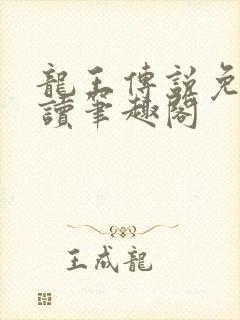 龍王傳說免
讀筆趣閣
王成龍